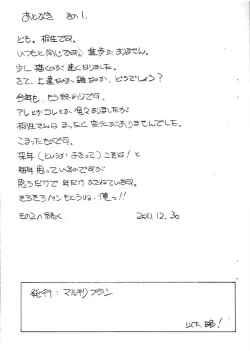 あとがき その1.
ども。相性です。
いつもと同じです。進歩がありません。
少し描くのが速くなりました。
さて、上達なのか、雑なのか、どうでしょう?
今年も、もう終わりです。
アレとかコレとか、色々ありましたが
相性さんは まったく変化がありませんでした。
こまったものです。
来年(というかあさって)こそは!と
毎年思っているのですが
思うだけで 年だけかさねています。
そろそろペンもとうね、俺っ!!
その2へ続く 2011.12.30
発行:マルチプラン
以下、略!